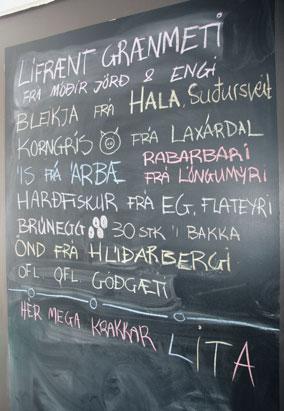 LIFRÆNT GRÆNMETI
FRA MÓÐIR JÖRÐ & ENGI
BLEIKJA FRÁ HALA, Suðursveit
KORNGRÍS FRÁ LAXÁRDAL
ÍS FRÁ ÁRBÆ RABARBARI
FRÁ LÖNGUMÝRI
HARÐFISKUR FRÁ EG, FLATEYRI
BRÚNEGG 30 STK Í BAKKA
ÖND FRÁ HLÍÐARBERGI
OFL OFL GÓÐGÆTI
HÉR MEGA KRAKKAR LITA